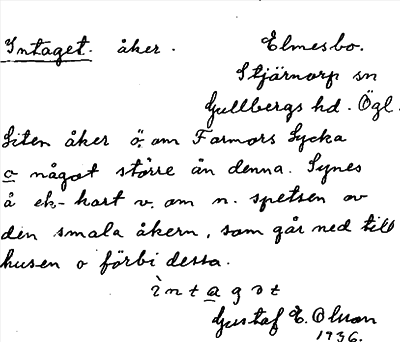 Intaget. åker.
Elmesbo.
Stjärnorp sn
Gullbergs hd. Ögl.
Liten åker ö. om Farmors Lycka
o något större än denna. Synes
å ek-kart v. om n. spetsen av
den smala åkern, som går ned till
husen o förbi dessa.
ìntagət
Gustaf E. Olson
1936.